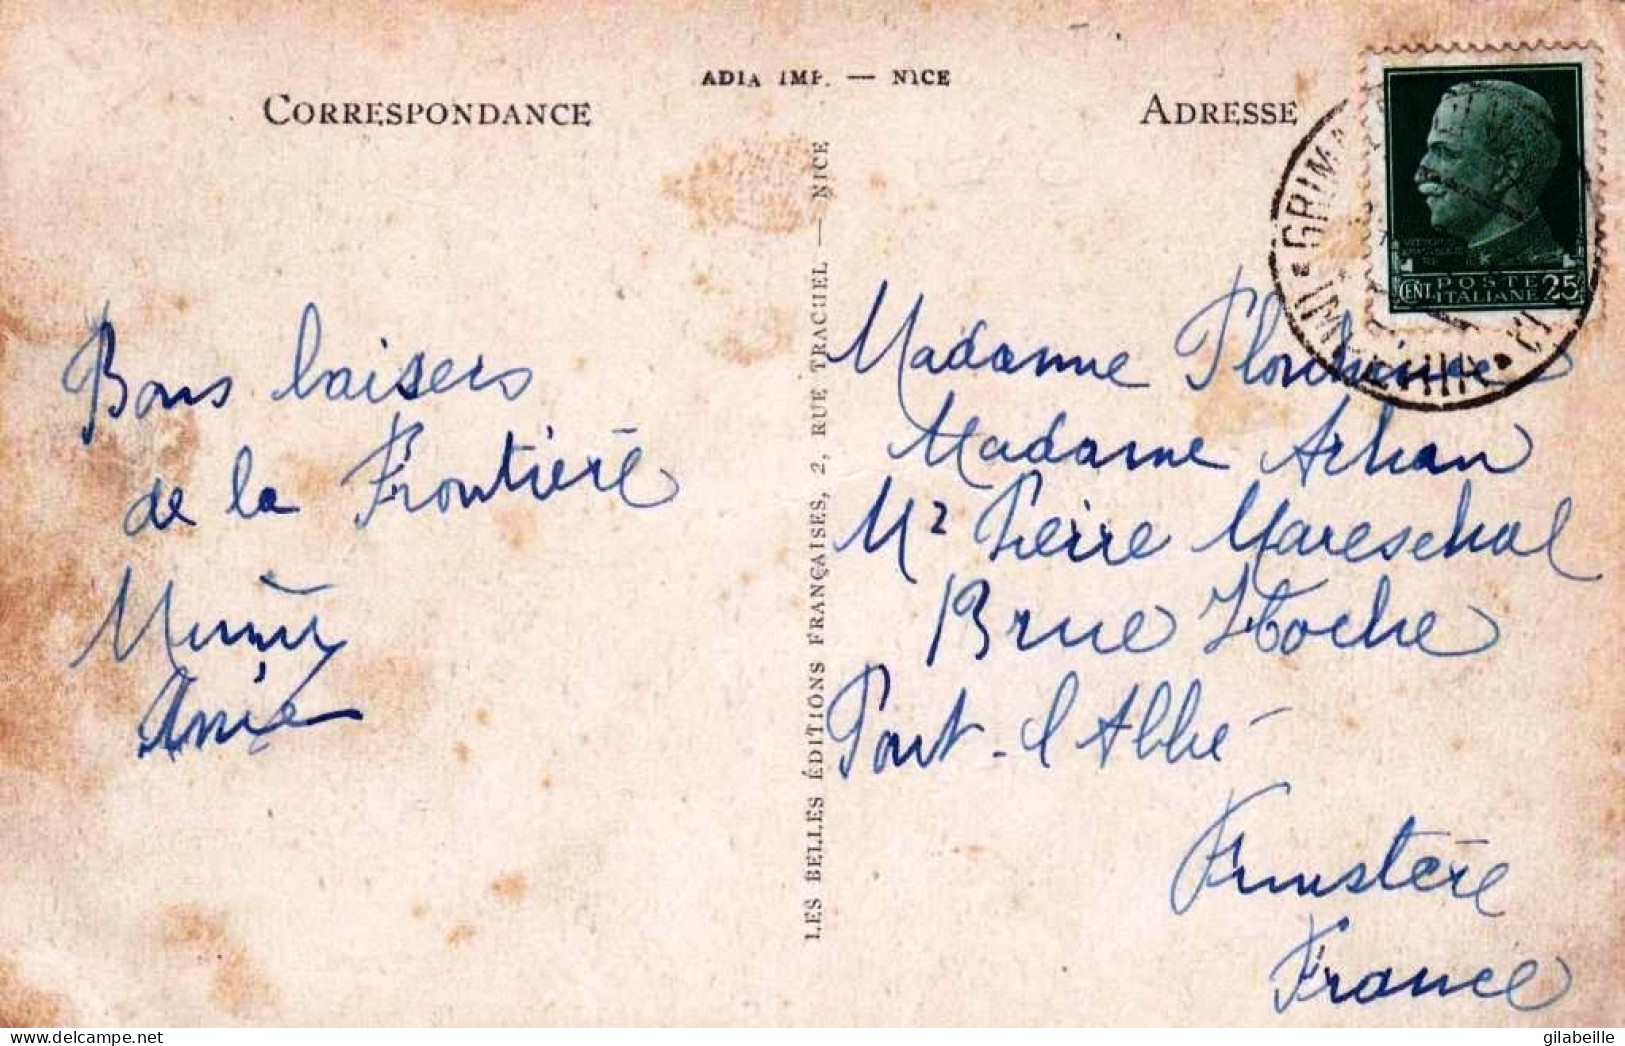 ADIA IMP. — NICE
CORRESPONDANCE
ADRESSE
LES BELLES ÉDITIONS FRANÇAISES, 2, RUE TRACHEL — NICE
POSTE
CENT. ITALIANE 25
Bons baisers
de la Frontière
Madame
Madame Arhan
Mr Pierre Mareschal
13 rue Hoche
Pont-l'Abbé
Finistère
France
gilabeille